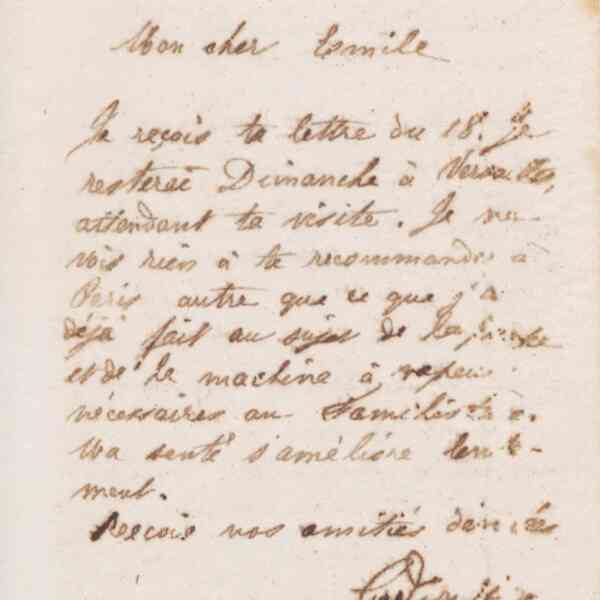 Mon cher Emile
Je reçois ta lettre du 18. je
resterai Dimanche à Versailles,
attendant ta visite. Je ne
vois rien à te recommander à
Paris autre que ce que j'ai
déjà fait au sujet de la
et de la machine à vapeur
nécessaires au Familistère.
Ma santé s'améliore lente-
ment.
Reçois nos amitiés